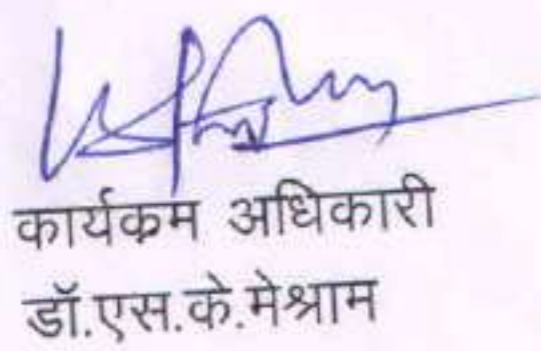 कार्यकम अधिकारी
डॉ.एस.के.मेश्राम